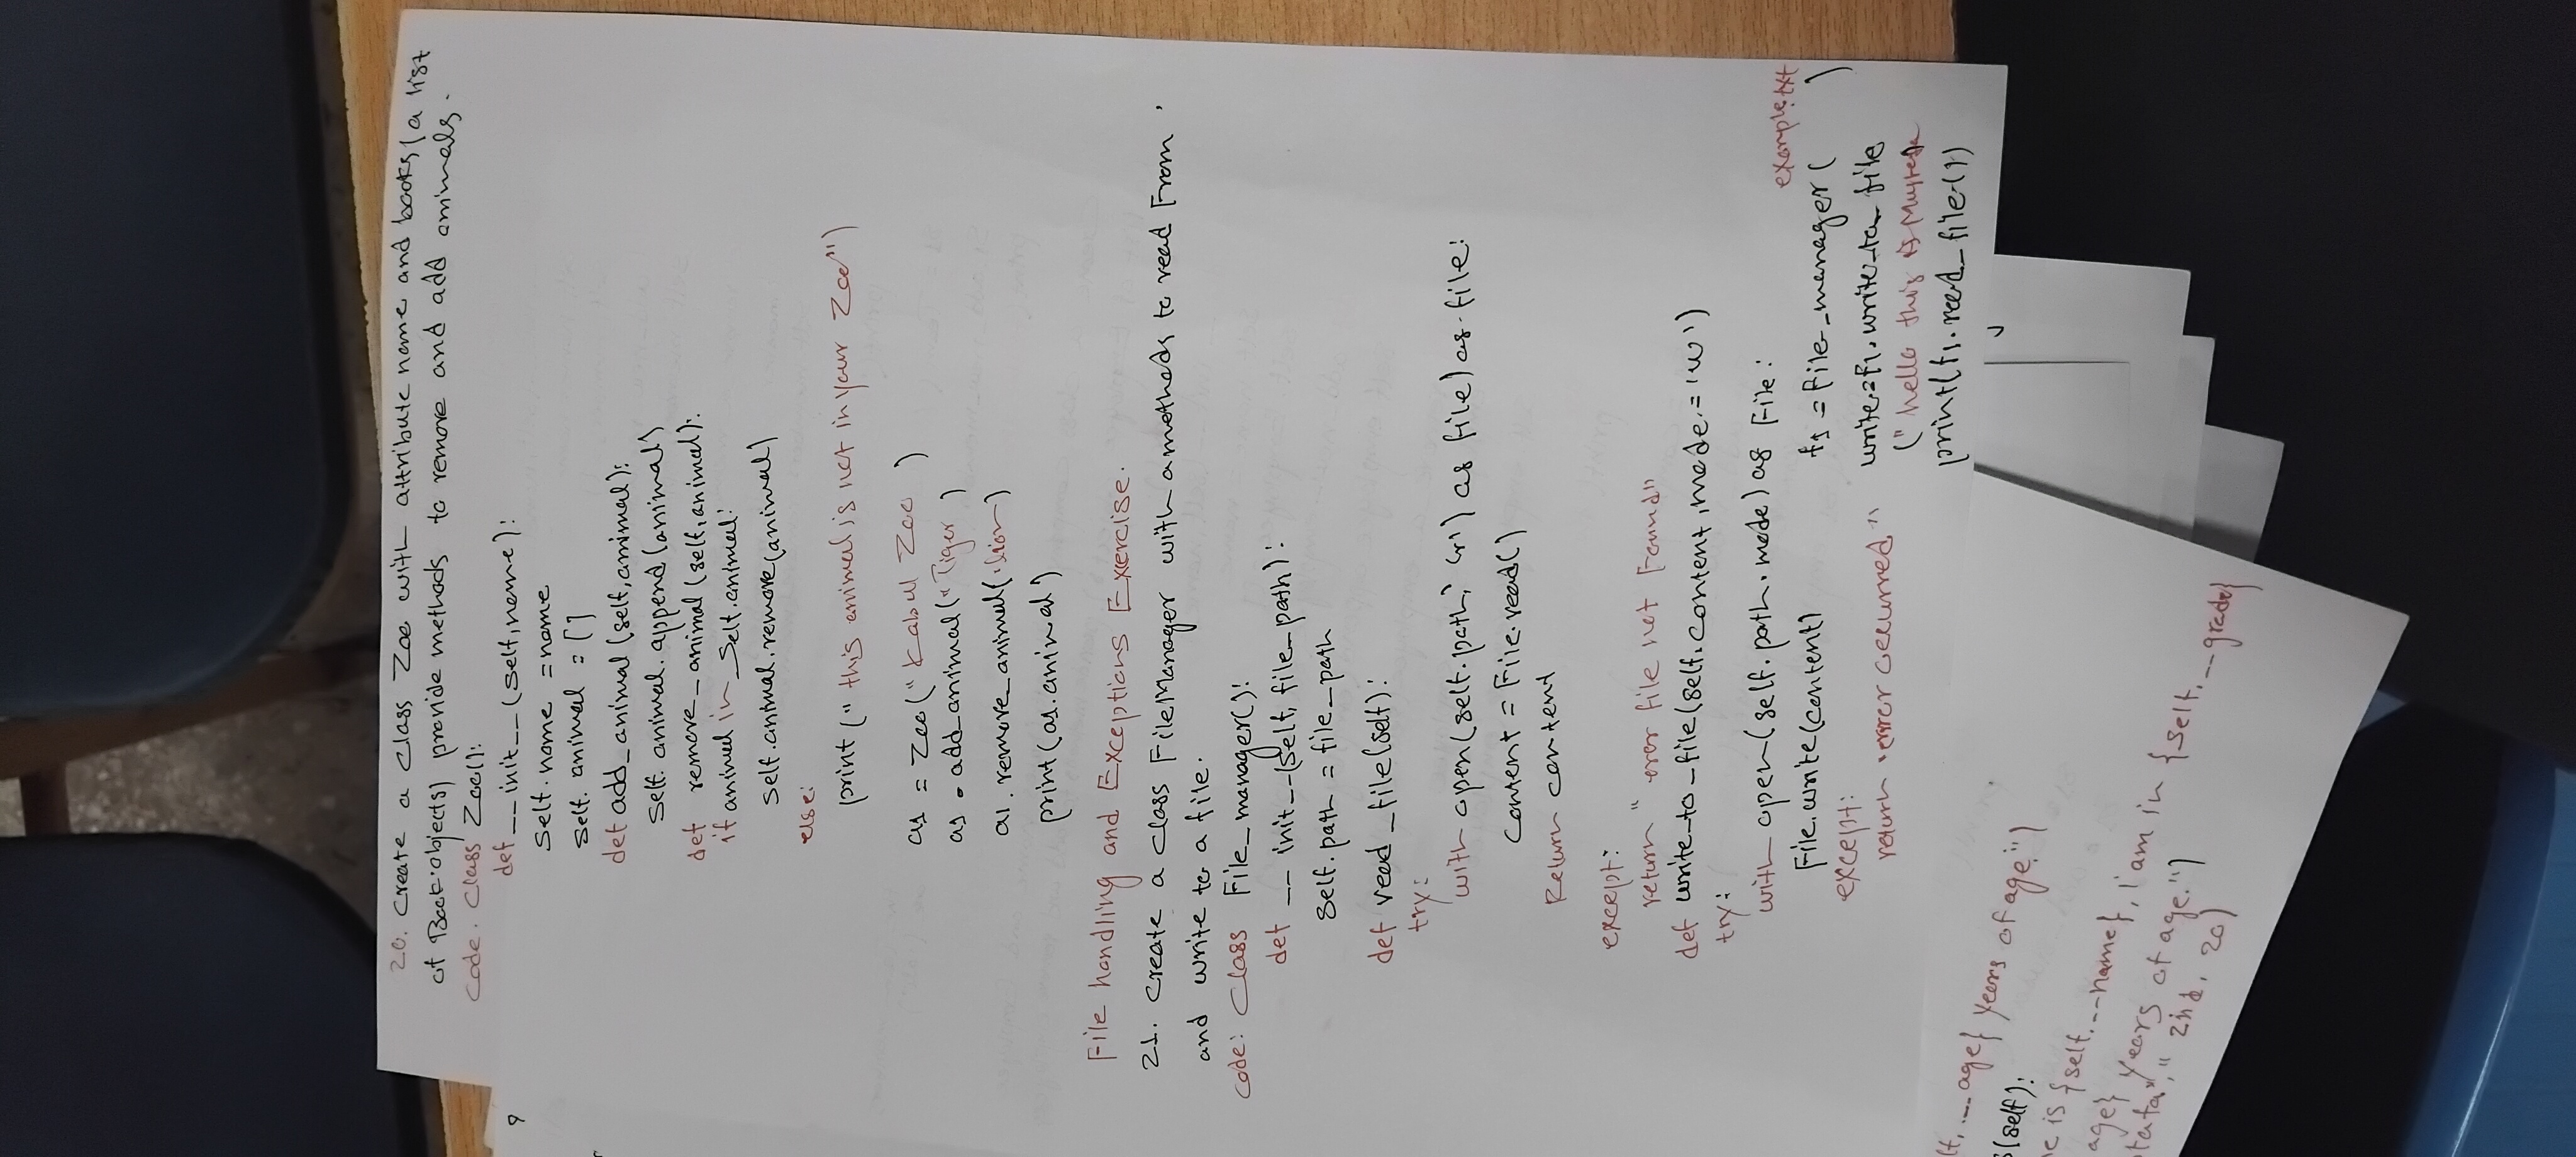 20. Create a class Zoo with attribute name and books (a list
of Book objects) provide methods to remove and add animals.
Code. Class Zoo():
def __init__(self, name):
Self.name = name
Self. animal = []
def add_animal (self, animal):
Self. animal. append (animal)
def remove_animal (self, animal):
if animal in Self.animal:
Self.animal.remove(animal)
else:
print (" this animal is not in your Zoo")
a1 = Zoo(" Kabul Zoo )
a1 . add_animal(" Tiger )
a1. remove_animal('lion)
print(a1.animal)
File handling and Exceptions Exercise.
21. Create a class FileManager with a methods to read From
and write to a file.
Code: Class File_manager():
def __ init__(self, file_path):
Self.path = file_path
def read_file(self):
try:
with open(self.path, 'r') as file) as file:
Content = File.read()
Return content
except:
return " error file not Found"
def write_to_file(self, content, mode = 'w')
try:
with open(self.path. mode) as File:
File.write(content)
except:
return "error occurred"
example.txt
f1 = file_manager( )
write=f1.write_to_file
(" hello this is
print(f1.read_file())
9
age} years of age.")
(self):
is {self.__name}, i am in {self.__grade}
age} years of age.")
2nd, 20)